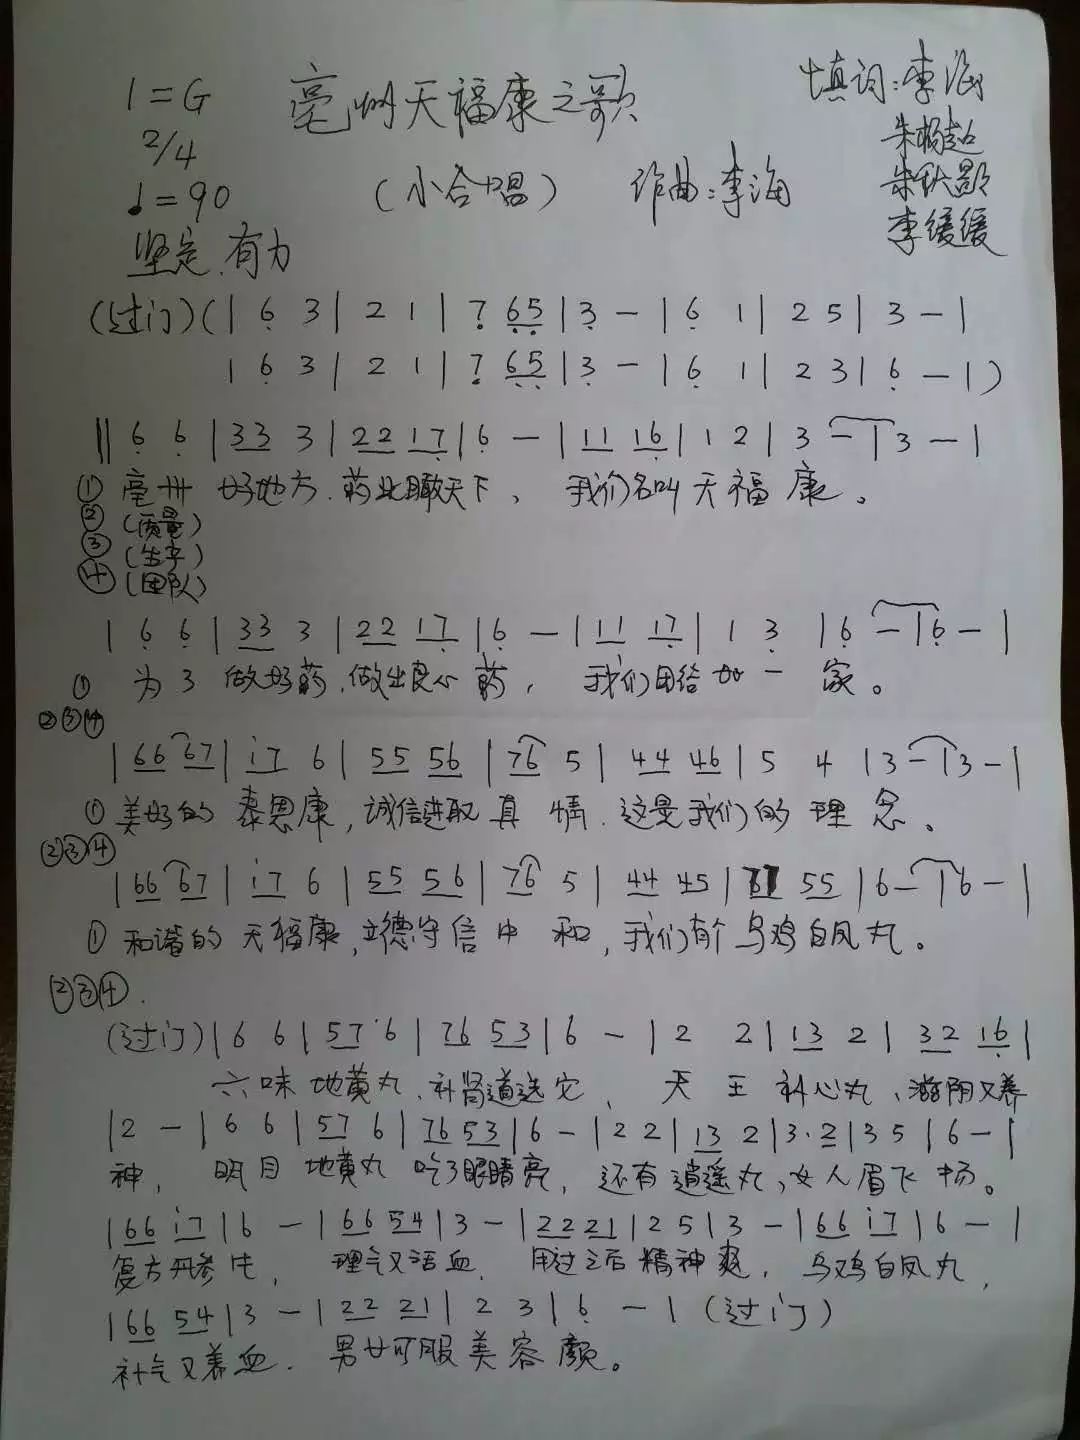 1=G 亳州天福康之歌 填词:李海
2/4 朱杨超
♩=90 (小合唱) 作曲:李海 朱秋影
坚定.有力 李缓缓
(过门)(| 6̣ 3 | 2 1 | 7̣ 6̣5̣ | 3̣ – | 6̣ 1 | 2 5 | 3 – |
| 6̣ 3 | 2 1 | 7̣ 6̣5̣ | 3̣ – | 6̣ 1 | 2 3 | 6̣ – |)
|| 6̣ 6̣ | 33 3 | 22 17̣ | 6̣ – | 11 16̣ | 1 2 | 3 – | 3 – |
① 亳州 好地方.药业瞰天下, 我们名叫天福康。
② (质量)
③ (生产)
④ (团队)
| 6̣ 6̣ | 33 3 | 22 17̣ | 6̣ – | 11 17̣ | 1 3̣ | 6̣ – | 6̣ – |
① 为了做好药.做出良心药, 我们团结如一家。
②③④
| 66 67 | i7 6 | 55 56 | 76 5 | 44 46 | 5 4 | 3 – | 3 – |
① 美好的泰恩康,诚信进取真情.这是我们的理念。
②③④
| 66 67 | i7 6 | 55 56 | 76 5 | 44 45 | 77 55 | 6 – | 6 – |
① 和谐的天福康,立德守信中和,我们有个乌鸡白凤丸。
②③④.
(过门) | 6 6 | 57 6 | 76 53 | 6 – | 2 2 | 13 2 | 32 16̣ |
六味地黄丸.补肾道选它、天王补心丸、滋阴又养
| 2 – | 6 6 | 57 6 | 76 53 | 6 – | 2 2 | 13 2 | 3.2 | 3 5 | 6 – |
神, 明目地黄丸 吃了眼睛亮, 还有逍遥丸,女人眉飞扬。
| 66 i7 | 6 – | 66 54 | 3 – | 22 21 | 2 5 | 3 – | 66 i7 | 6 – |
复方丹参片, 理气又活血. 用过之后精神爽, 乌鸡白凤丸,
| 66 54 | 3 – | 22 21 | 2 3 | 6̣ – | (过门)
补气又养血. 男女可服美容颜。